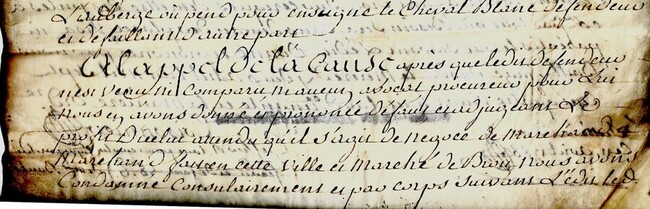 L'auberge ou pend pour enseigne le Cheval Blanc defendeur
et defaillant d'autre part
A l'appel de la Cause après que ledit defendeur
n'est venu ni comparu avocat procureur pour lui
nous en avons donné et prononcé defaut et adjugeant le
profit d'iceluy attendu qu'il s'agit de negoce de marchand a
marchand fait en cette ville et marché de nous avons
Condamné Consulairement et par corps suivant L'edit led